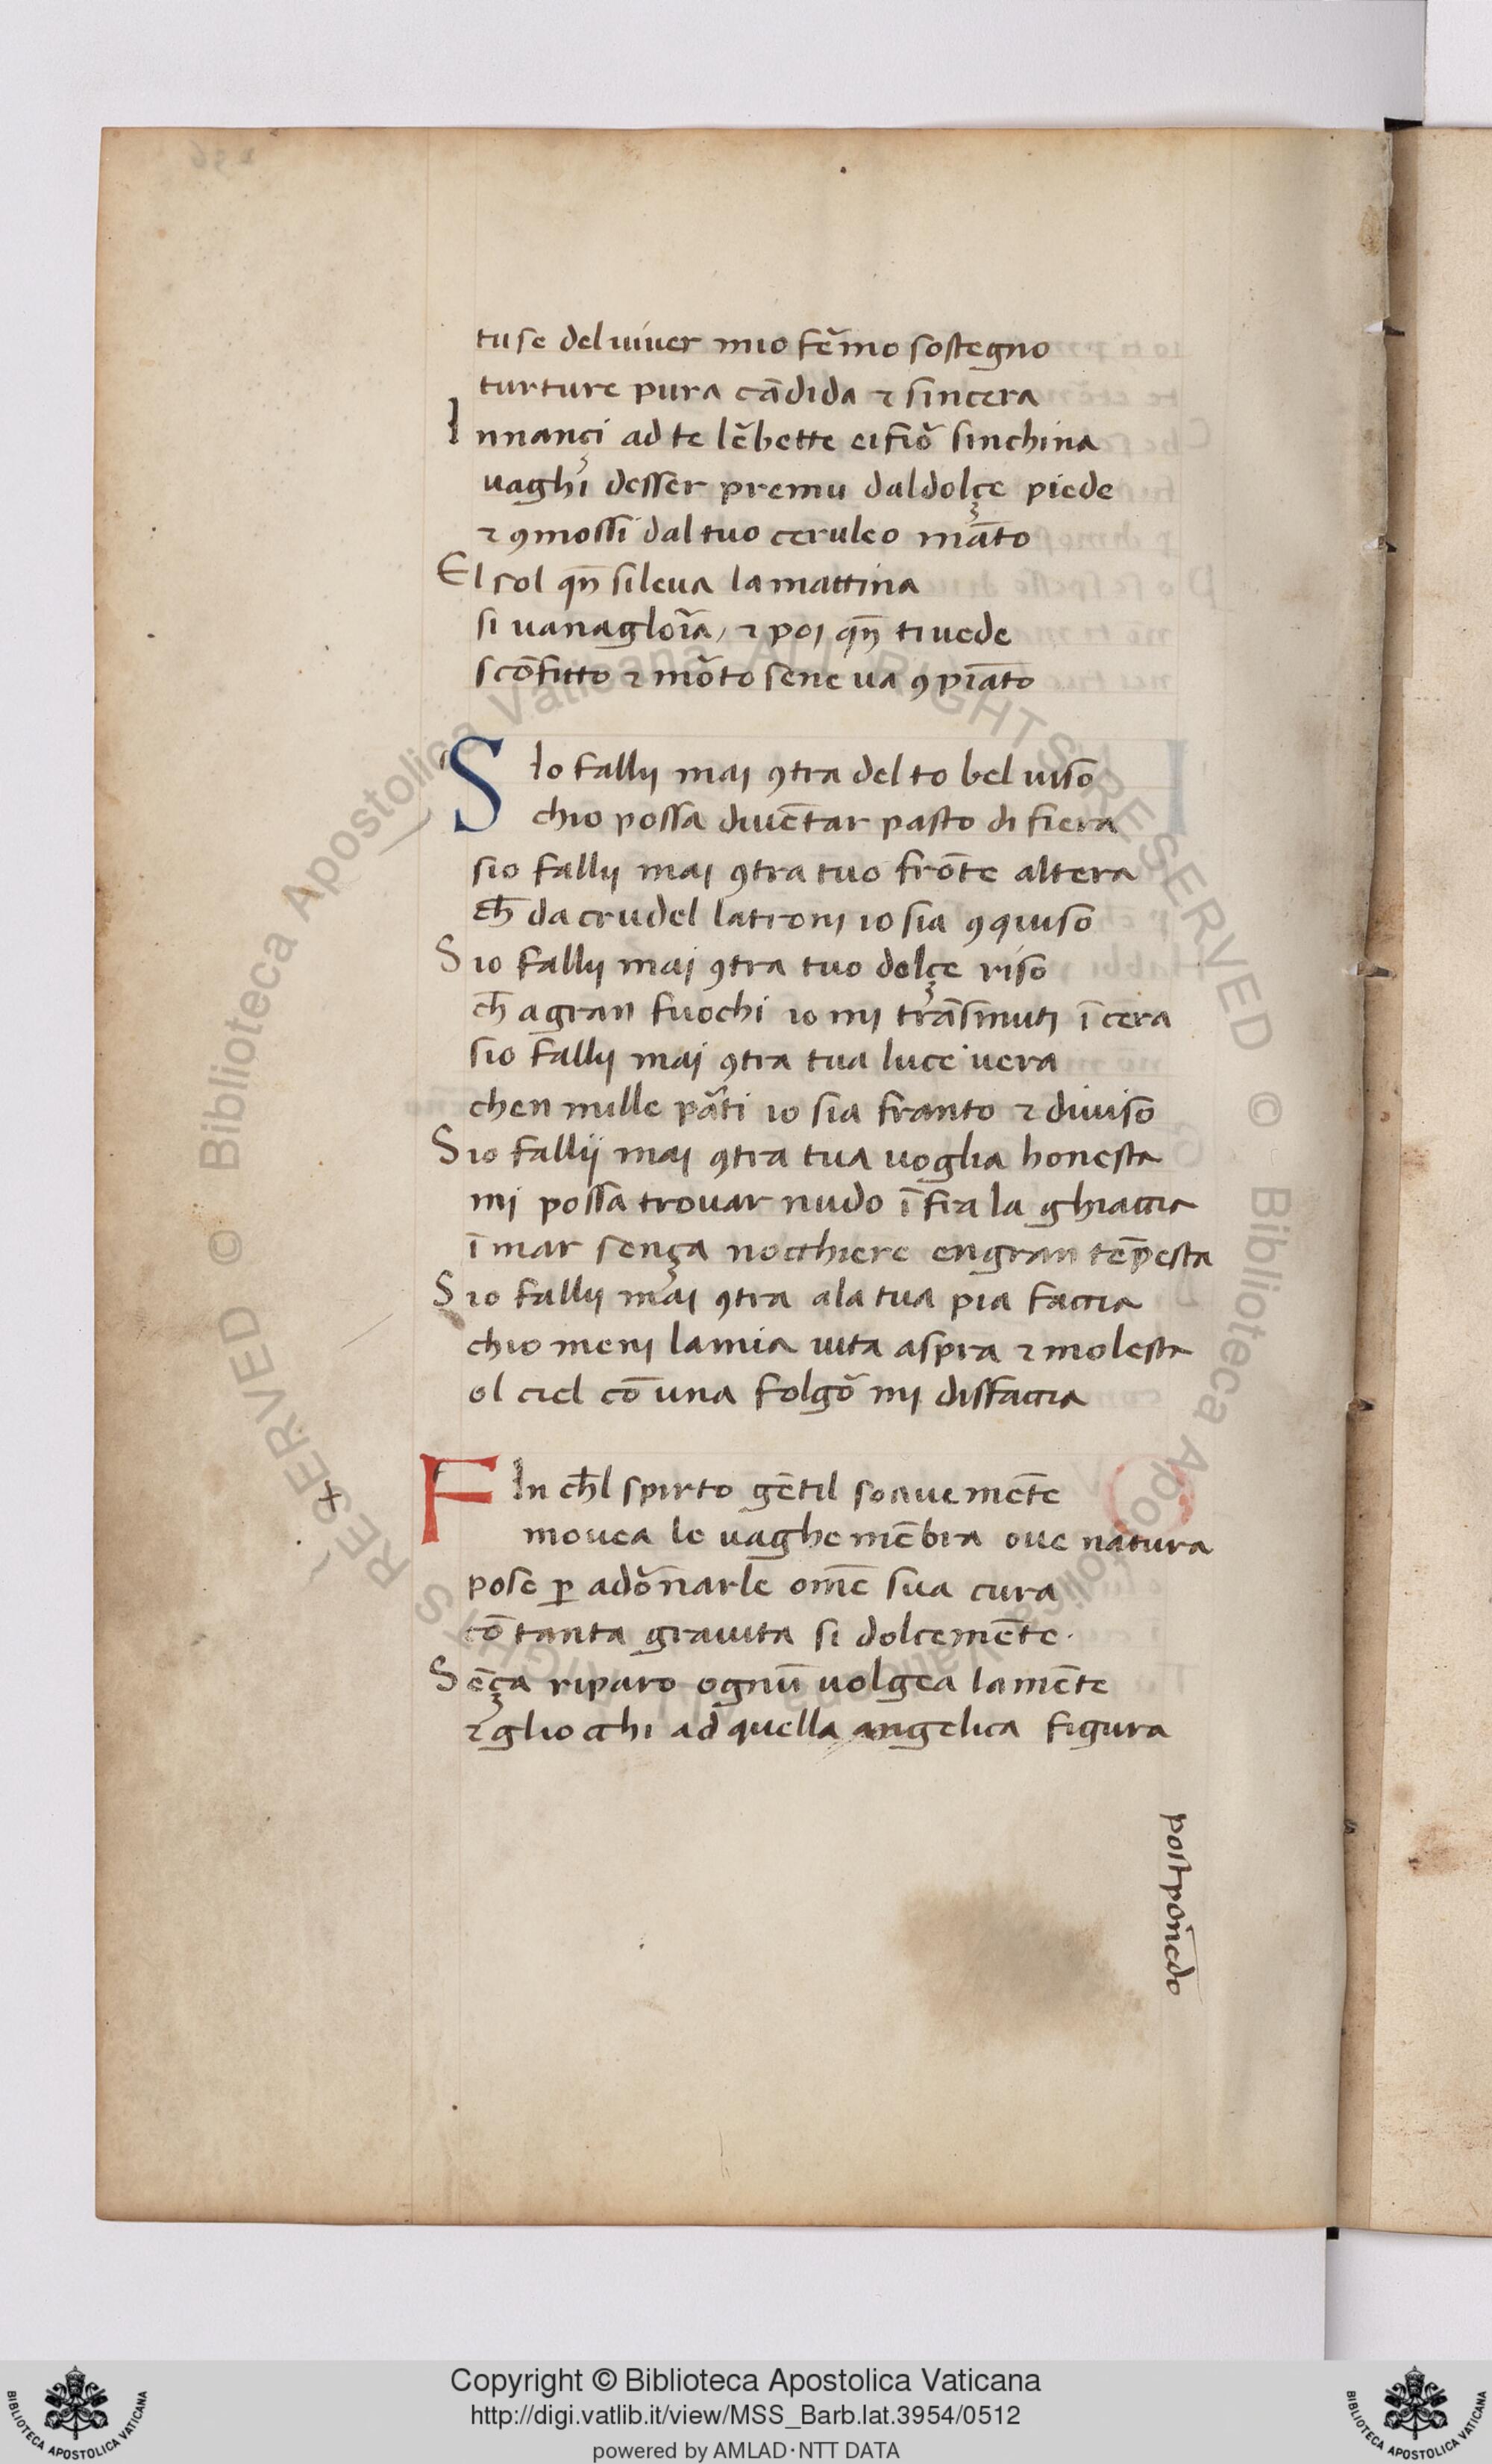 tu se del uiuer mio fe᷒mo sostegno
turture pura cādida ⁊ sincera
Innançi ad te le᷒bette ei fio᷒ sinchina
uaghi desser premu dal dolçe piede
⁊ ꝯmossi dal tuo ceruleo māto
El sol qn̄ si leua la mattina
si uanagloīa, ⁊ poi qn̄ ti uede
scōfitto ⁊ mo᷒to sene ua ꝯ piāto
SIo fallij mai ꝯtra del to bel uiso
chio possa diuētar pasto di fiera
sio fallij mai ꝯtra tuo frōte altera
ch̄ da crudel latroni io sia ꝯquiso
Sio fallij mai ꝯtra tuo dolçe riso
ch̄ a gran fuochi io mi trāsmuti ī cera
sio fallij mai ꝯtra tua luce uera
chen mille pa᷒ti io sia franto ⁊ diuiso
Sio fallij mai ꝯtra tua uoglia honesta
mi possa trouar nudo ī fra la ghiaccia
ī mar sença nocchiere en gran tēpesta
Sio fallij mai ꝯtra ala tua pia faccia
chio meni la mia uita aspra ⁊ molesta
ol ciel cō una folgo᷒ mi disfaccia
FIn ch̄l spirto gētil soauemēte
mouea le uaghe mēbra oue natura
pose ꝑ ado᷒narle om̄e sua cura
cō tanta grauita si dolcemēte.
Sēça riparo ognū uolgea la mēte
⁊ gliocchi ad quella angelica figura
postponēdo
Copyright © Biblioteca Apostolica Vaticana
http://digi.vatlib.it/view/MSS_Barb.lat.3954/0512
powered by AMLAD·NTT DATA
BIBLIOTECA APOSTOLICA VATICANA
BIBLIOTECA APOSTOLICA VATICANA
© Biblioteca Apostolica Vaticana ALL RIGHTS RESERVED
© Biblioteca Apostolica Vaticana ALL RIGHTS RESERVED